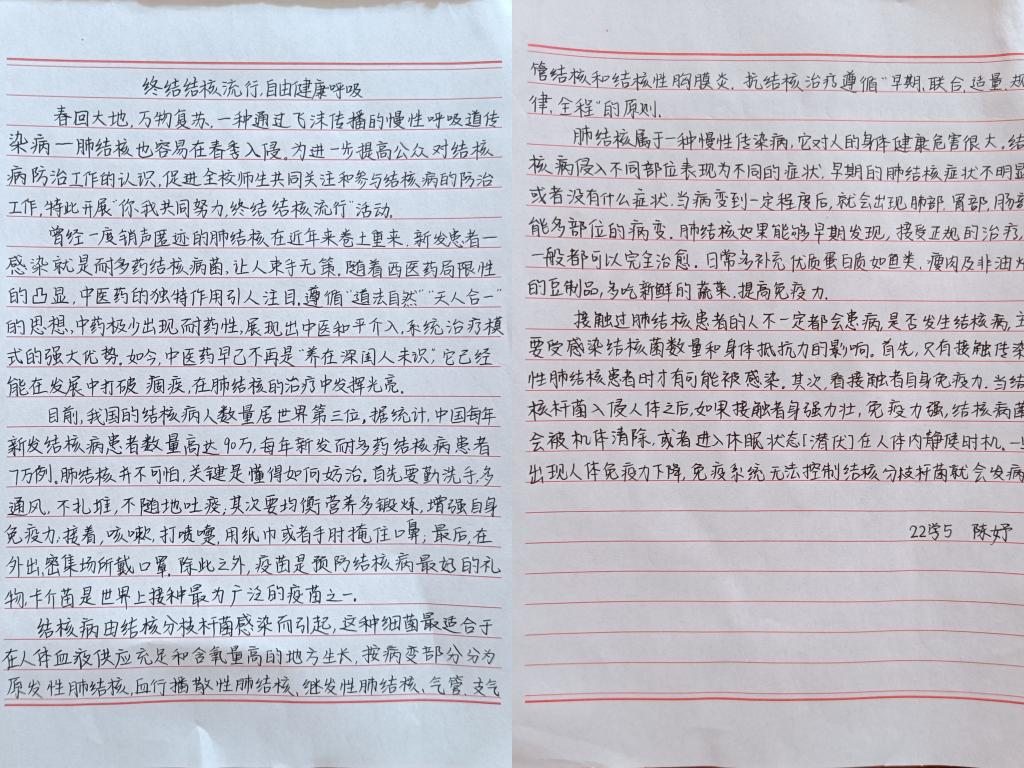 终结结核流行,自由健康呼吸
春回大地,万物复苏.一种通过飞沫传播的慢性呼吸道传
染病一肺结核也容易在春季入侵.为进一步提高公众对结核
病防治工作的认识,促进全校师生共同关注和参与结核病的防治
工作,特此开展"你我共同努力,终结结核流行"活动.
曾经一度销声匿迹的肺结核在近年来卷土重来,新发患者一
感染就是耐多药结核病菌,让人束手无策.随着西医药局限性
的凸显,中医药的独特作用引人注目.遵循"道法自然""天人合一"
的思想,中药极少出现耐药性,展现出中医和平介入,系统治疗模
式的强大优势.如今,中医药早己不再是"养在深闺人未识":它己经
能在发展中打破痼疾,在肺结核的治疗中发挥光亮.
目前,我国的结核病人数量居世界第三位.据统计,中国每年
新发结核病患者数量高达90万,每年新发耐多药结核病患者
7万例.肺结核并不可怕,关键是懂得如何妨治.首先要勤洗手,多
通风,不扎堆,不随地吐痰;其次要均衡营养多锻炼,增强自身
免疫力;接着,咳嗽,打喷嚏,用纸巾或者手肘掩住口鼻;最后,在
外出,密集场所戴口罩.除此之外,疫苗是预防结核病最好的礼
物,卡介苗是世界上接种最为广泛的疫苗之一.
结核病由结核分枝杆菌感染而引起,这种细菌最适合于
在人体血液供应充足和含氧量高的地方生长,按病变部分分为
原发性肺结核,血行播散性肺结核、继发性肺结核、气管、支气
管结核和结核性胸膜炎.抗结核治疗遵循"早期,联合,适量,规
律,全程"的原则.
肺结核属于一种慢性传染病,它对人的身体健康危害很大.结
核病侵入不同部位表现为不同的症状.早期的肺结核症状不明显
或者没有什么症状.当病变到一定程度后,就会出现肺部,胃部,肠部
能多部位的病变.肺结核如果能够早期发现,接受正规的治疗,
一般都可以完全治愈.日常多补充优质蛋白质如鱼类,瘦肉及非油炸
的豆制品,多吃新鲜的蔬菜,提高免疫力.
接触过肺结核患者的人不一定都会患病,是否发生结核病,主
要受感染结核菌数量和身体抵抗力的影响.首先,只有接触传染
性肺结核患者时才有可能被感染.其次,看接触者自身免疫力.当结
核杆菌入侵人体之后,如果接触者身强力壮,免疫力强,结核病菌
会被机体清除,或者进入休眠状态[潜伏]在人体内静候时机.一旦
出现人体免疫力下降,免疫系统无法控制结核分枝杆菌就会发病
22学5 陈妤